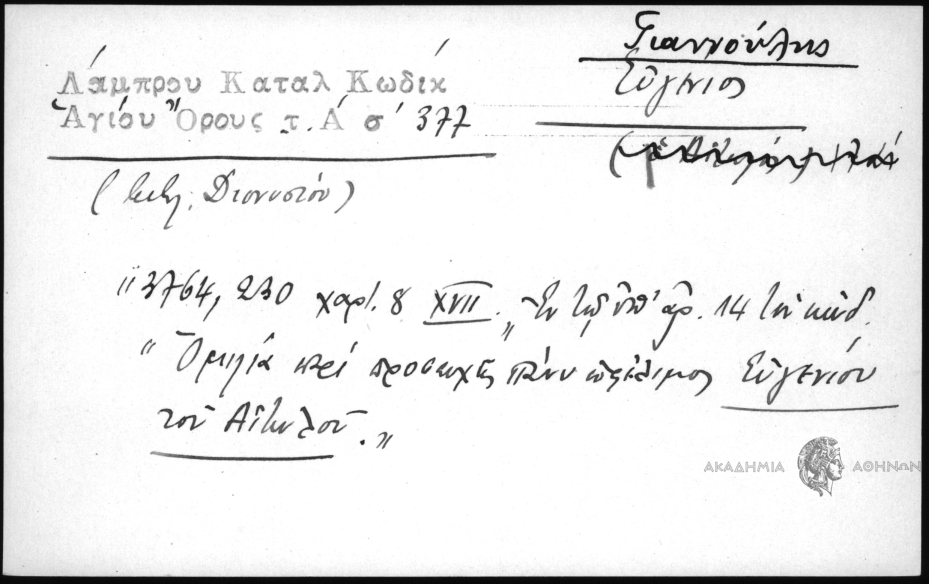 Γιαννούλης
Εὐγένιος
Λάμπρου Καταλ Κωδίκ
Ἁγίου Ὄρους τ. Α σ 377
(Διονυσίου)
"3764, 230 χαρτ. 8 XVII." Ἐν τῷ ὑπ' ἀρ. 14 τοῦ κώδ.
"Ὁμιλία περί προσευχῆς πάνυ ὠφέλιμος Εὐγενίου
τοῦ Αἰτωλοῦ."
ΑΚΑΔΗΜΙΑ ΑΘΗΝΩΝ